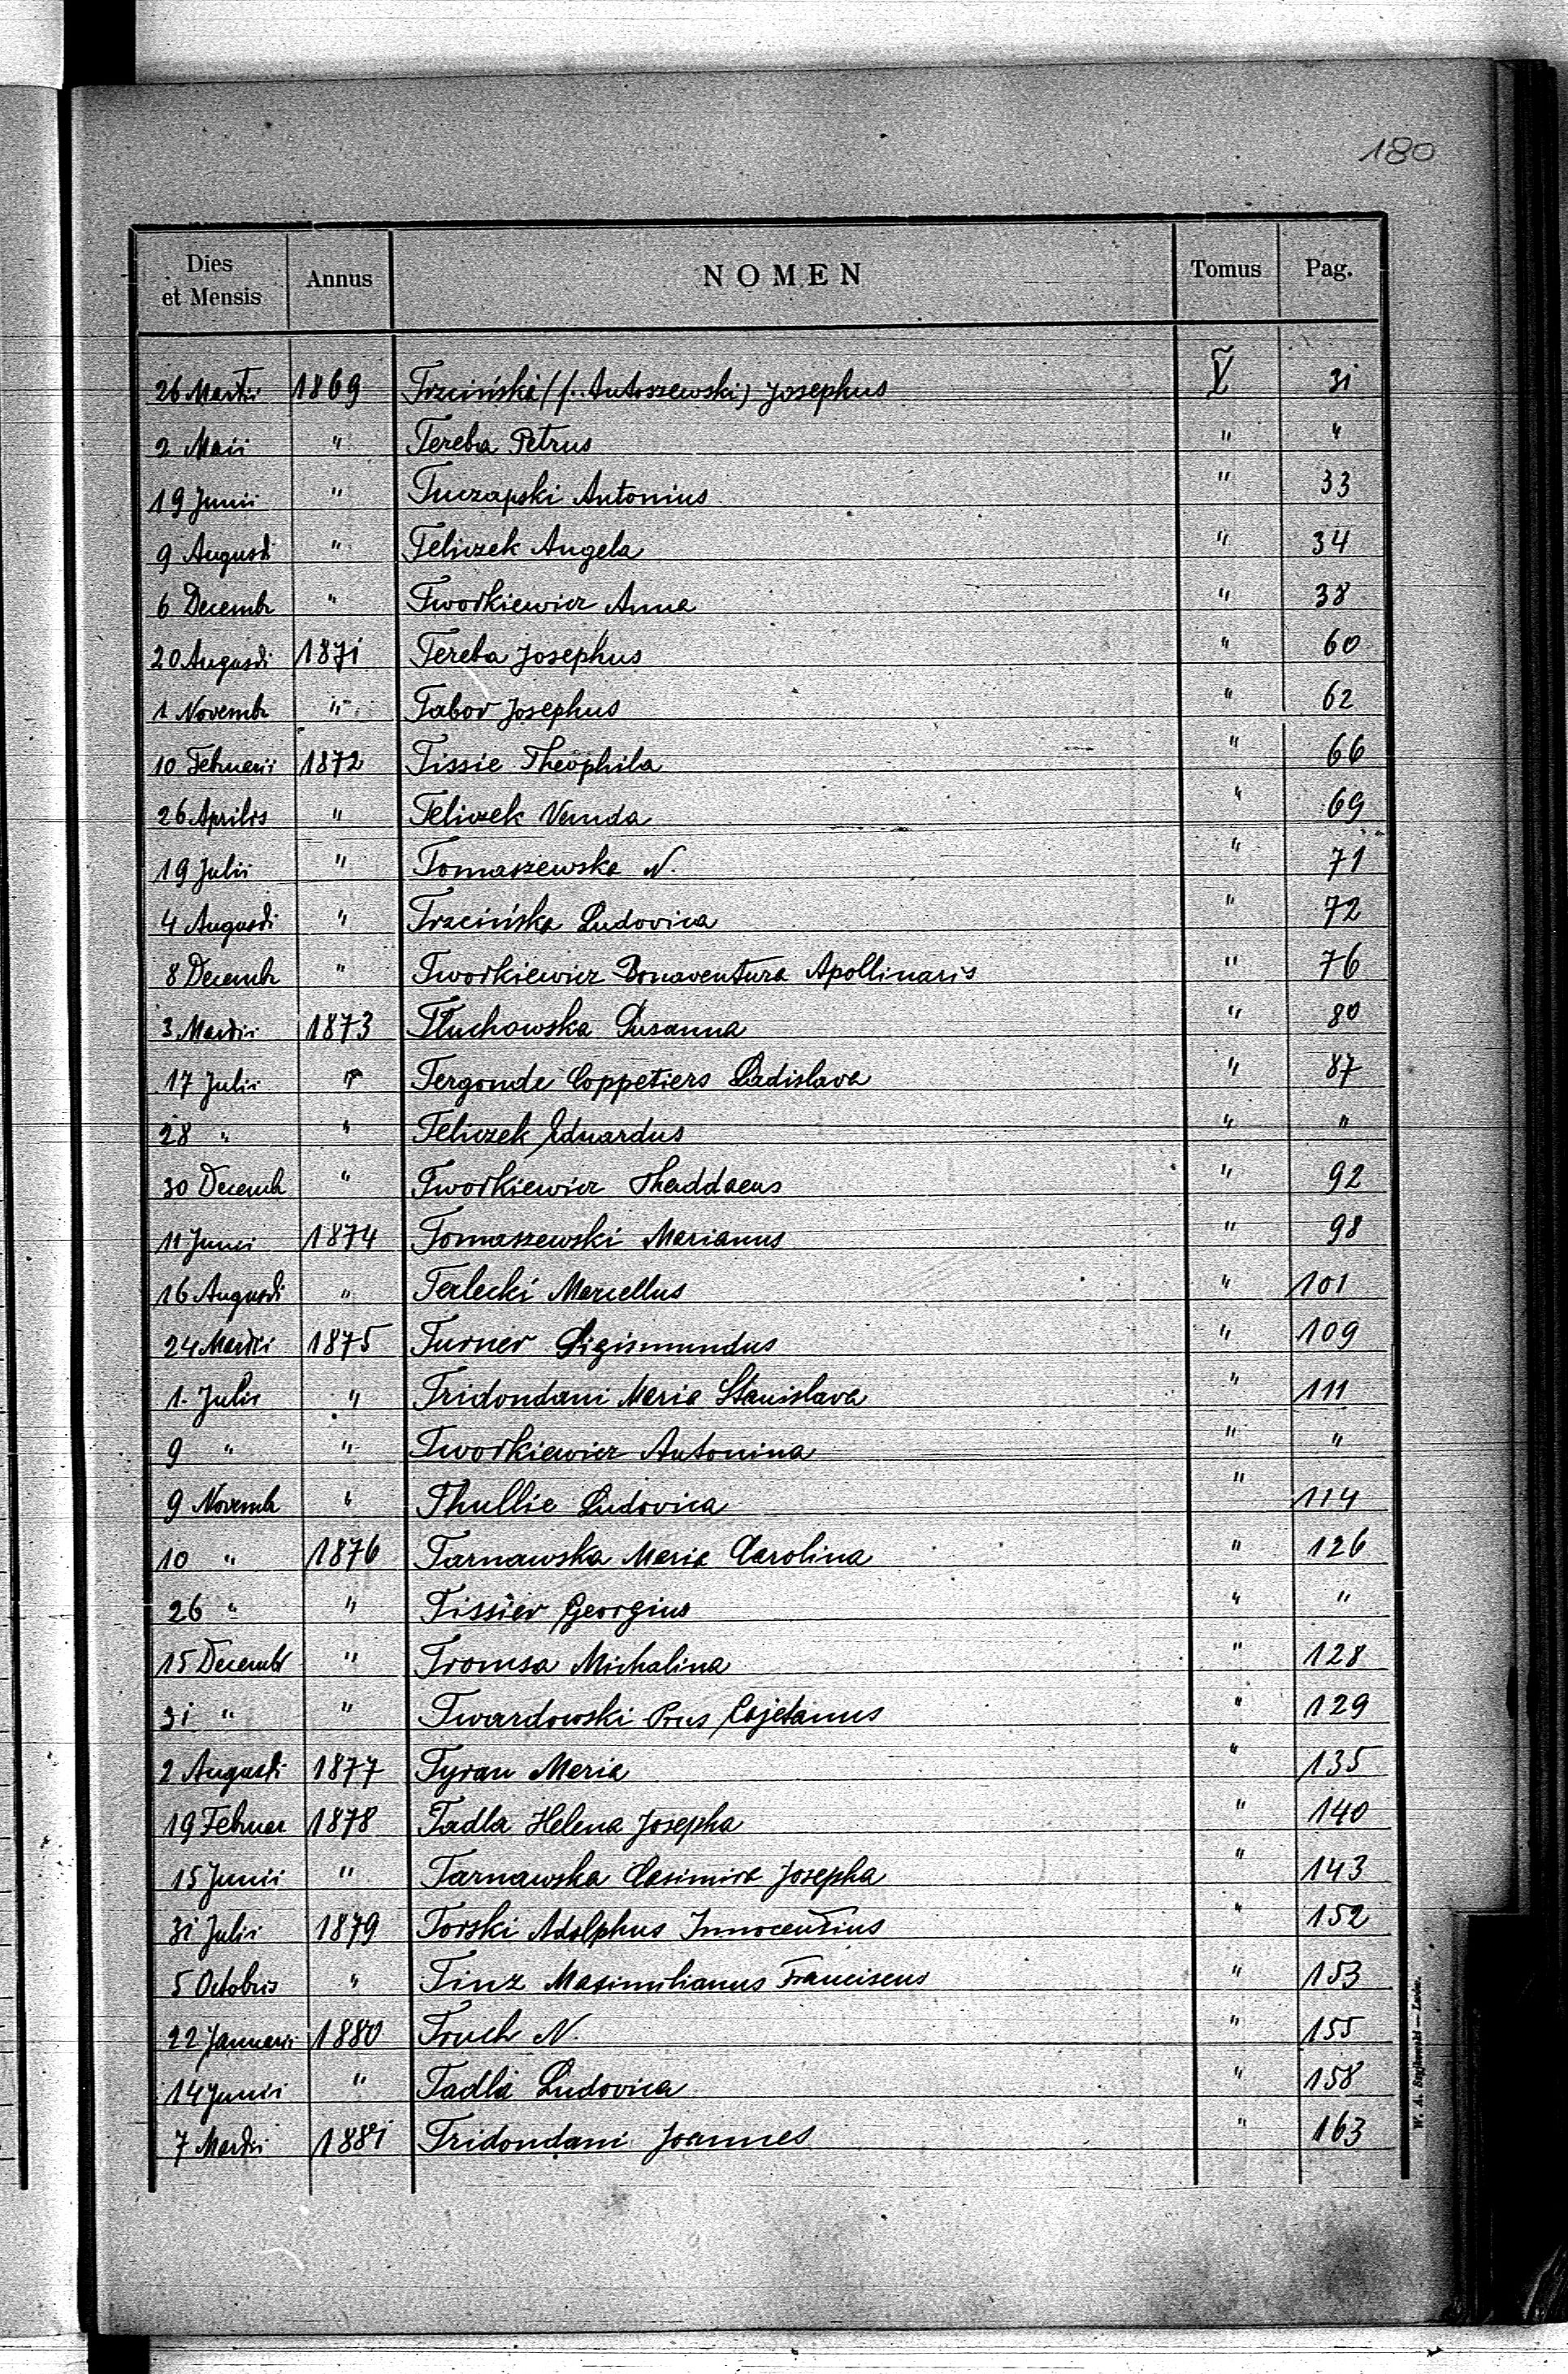 180
Dies et Mensis Annus NOMEN Tomus Pag.
26 Martii 1869 Trzciński (f. Antoszewski) Josephus V 31
2 Maii " Tereba Petrus " "
19 Junii " Tuczapski Antonius " 33
9 Augusti " Teliczek Angela " 34
6 Decembr " Tworkiewicz Anna " 38
20 Augusti 1871 Tereba Josephus " 60
1 Novembr " Tabor Josephus " 62
10 Februarii 1872 Tissie Theophila " 66
26 Aprilis " Teliczek Vanda " 69
19 Julii " Tomaszewska N. " 71
4 Augusti " Trzcińska Ludovica " 72
8 Decembr " Tworkiewicz Bonaventura Apollinaris " 76
3 Martii 1873 Tłuchowska Susanna " 80
17 Julii " Tergonde Coppetiers Ladislava " 87
28 " " Teliczek Eduardus " "
30 Decemb " Tworkiewicz Thaddaeus " 92
11 Junii 1874 Tomaszewski Marianus " 98
16 Augusti " Terlecki Marcellus " 101
24 Martii 1875 Turner Sigismundus " 109
1. Julii " Tridondani Maria Stanislava " 111
9 " " Tworkiewicz Antonina " "
9 Novemb " Thullie Ludovica " 114
10 " 1876 Tarnawska Maria Carolina " 126
26 " " Tissier Georgius " "
15 Decembr " Tromsa Michalina " 128
31 " " Twardowski Prus Cajetanus " 129
2 Augusti 1877 Tyran Maria " 135
19 Februar 1878 Tadla Helena Josepha " 140
15 Junii " Tarnawska Casimira Josepha " 143
31 Julii 1879 Torski Adolphus Innocentius " 152
5 Octobris " Tinz Maximilianus Franciscus " 153
22 Januarii 1880 Truch N. " 155
14 Junii " Tadla Ludovica " 158
7 Martii 1881 Tridondani Joannes " 163
W. A. — Lwów.